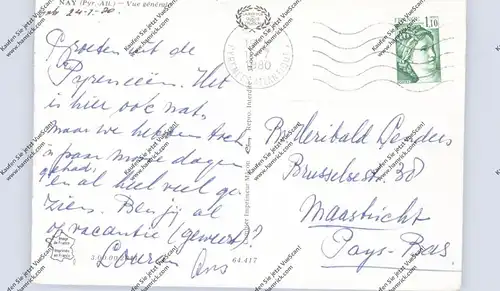 NAY (Pyr.-Atl.) — Vue générale
24-7-80.
Groeten uit de
Pyreneeën. Het
is hier ook nat,
maar we hebben toch
n paar mooie dagen
gehad,
en al heel veel ge
zien. Ben jij al
op vacantie (geweest)?
Louran
Ans
1,10
1980
PYRENEES ATLANTIQUES
Lenders
Brusselsestr. 38
Maastricht
Pays-Bas
64.417
Kaufen Sie jetzt VueScan!
www.hamrick.com